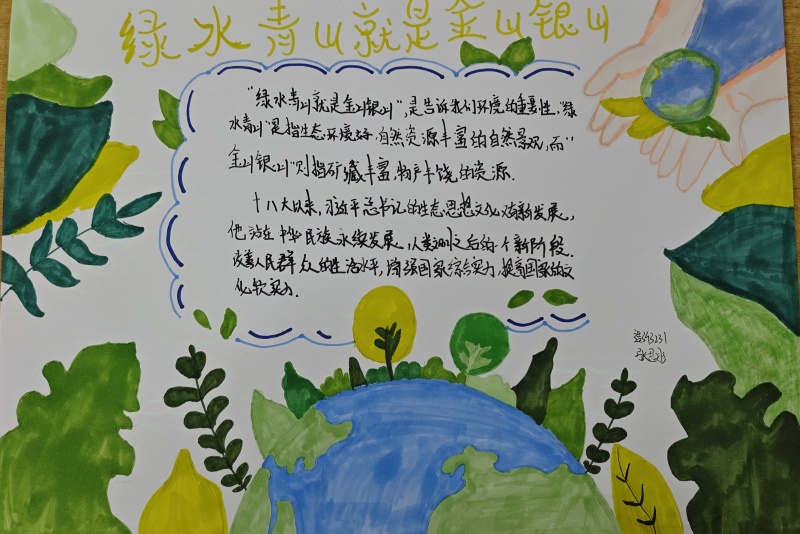 绿水青山就是金山银山
“绿水青山就是金山银山”,是告诉我们环境的重要性,“绿
水青山”是指生态环境好,自然资源丰富的自然景观,而“
金山银山”则指矿藏丰富,物产丰饶的资源.
十八大以来,习近平总书记的生态思想文化有新发展,
他站在中华民族永续发展,人类之后的个新阶段.
改善人民群众的生活水平,增强国家综合实力,提高国家的文
化软实力.